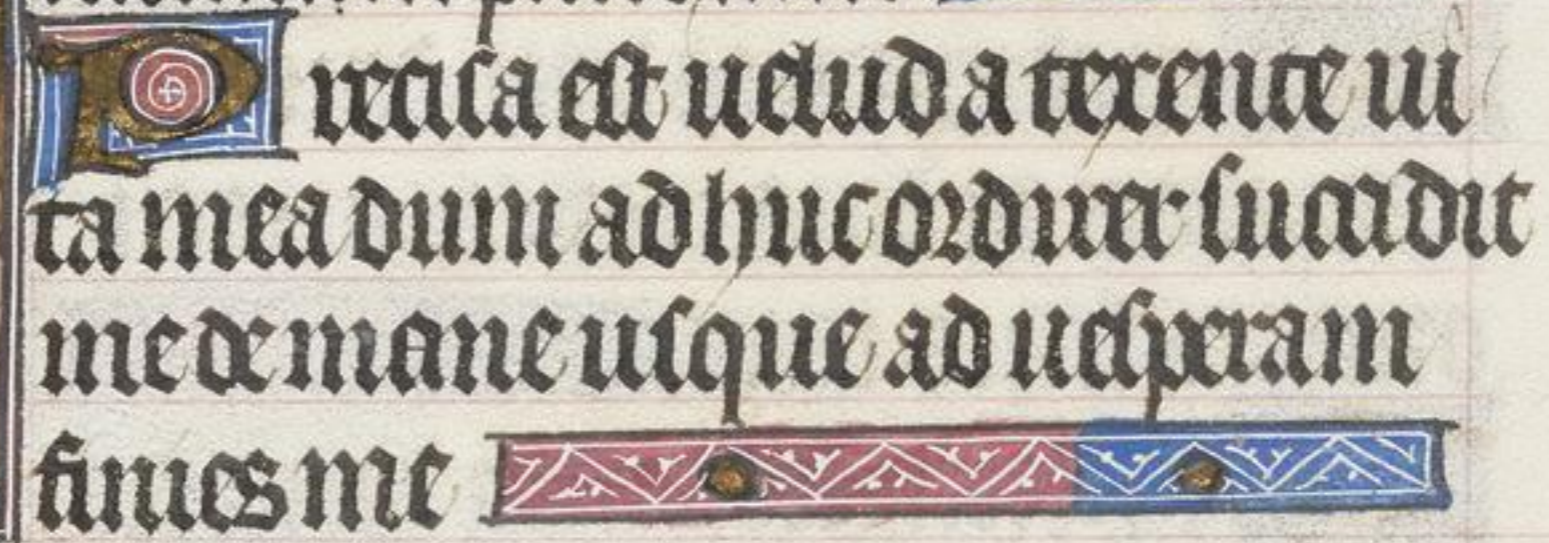 Precisa est uelud a texente ui
ta mea dum adhuc ordirer succidit
me de mane usque ad uesperam
finies me